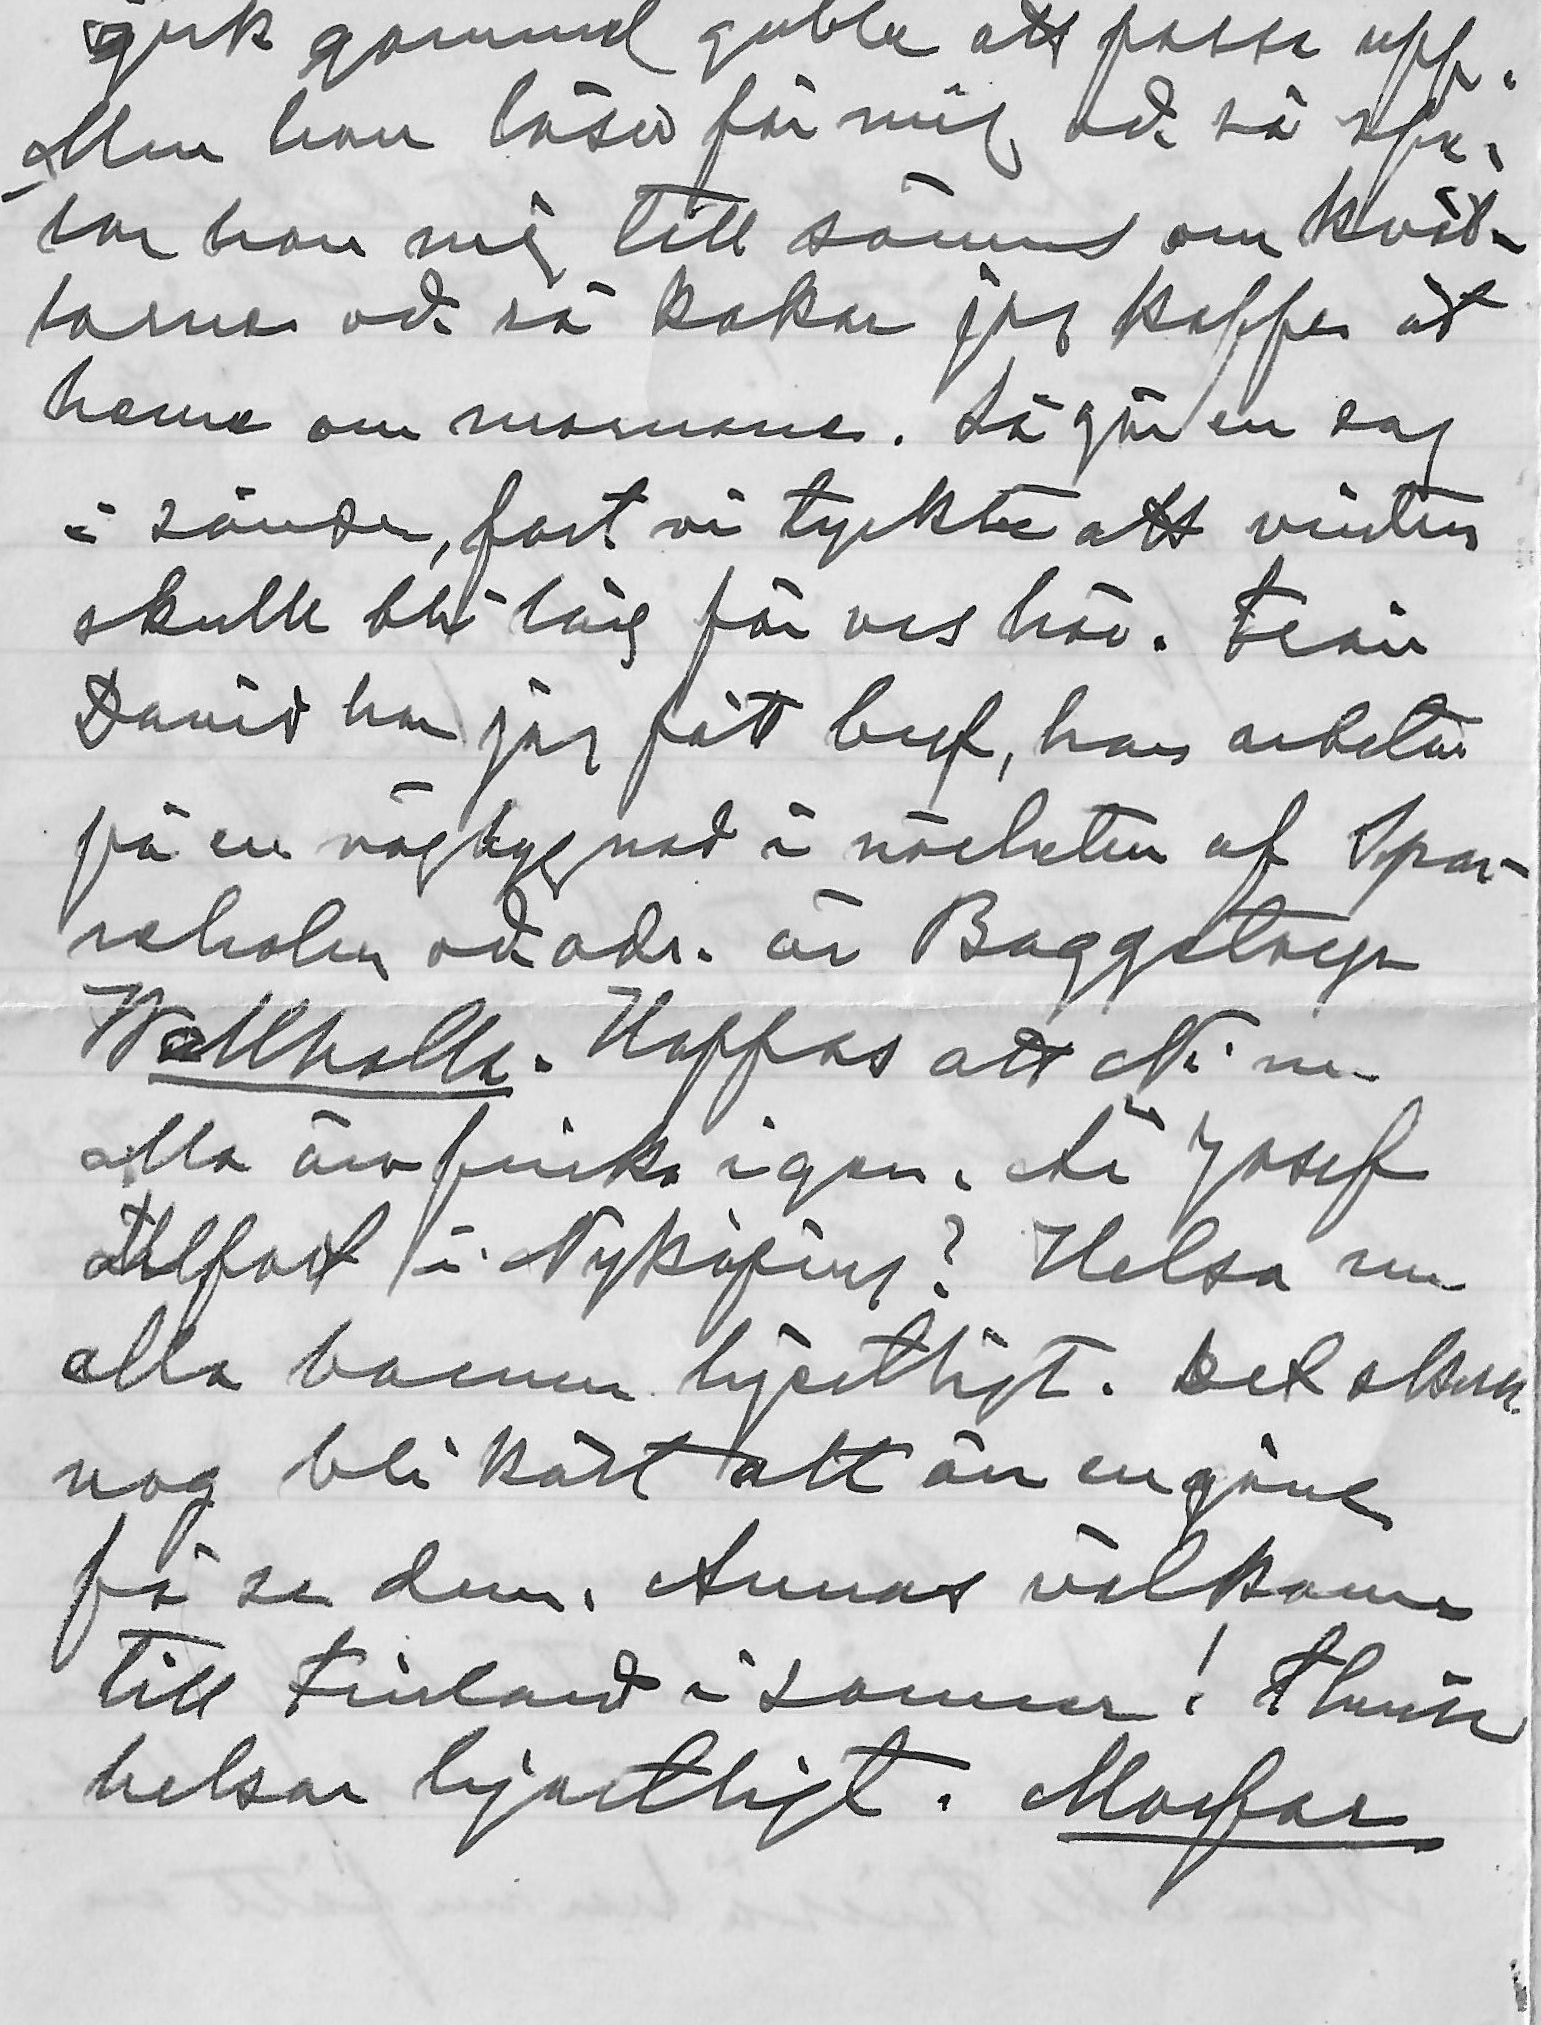 sjuk gammal gubbe att passa upp.
Men hon läser för mig och så spe-
lar hon mig till sömns om kväl-
larna och så kokar jag kaffe åt
henne om mornarne. Så går en dag
i sänder, fast vi tyckte att vintern
skulle bli lång för oss här. Från
David har jag fått bref, han arbetar
på en vägbyggnad i närheten af Spar-
reholm och adr. är Baggetorp
Wallhalla. Hoppas att Ni nu
alla äro friska igen. Är Josef
alltfort i Nyköping? Helsa nu
alla barnen hjertligt. Det skall
nog bli kärt att än en gång
få se dem. Annas välkomna
till Finland i sommar!
helsar hjertligt. Morfar